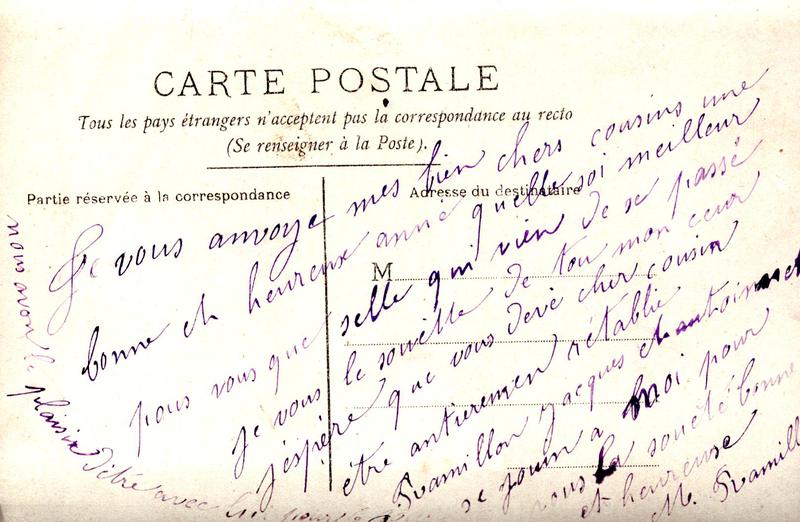 CARTE POSTALE
Tous les pays étrangers n'acceptent pas la correspondance au recto
(Se renseigner à la Poste).
Partie réservée à la correspondance
Adresse du destinataire
M
Je vous anvoye mes bien chers cousins une
bonne et heureuse année quelle soi meilleur
pour vous que selle qui vien de se passé
je vous le souète de tou mon cœur
j'éspére que vous devé cher cousin
étre antieremen rétablie
Framillon Jacques et antoinnet
se join a moi pour
vous la souété bonne
et heureuse
M. Framill
nous avon le plaisir d'étre avec